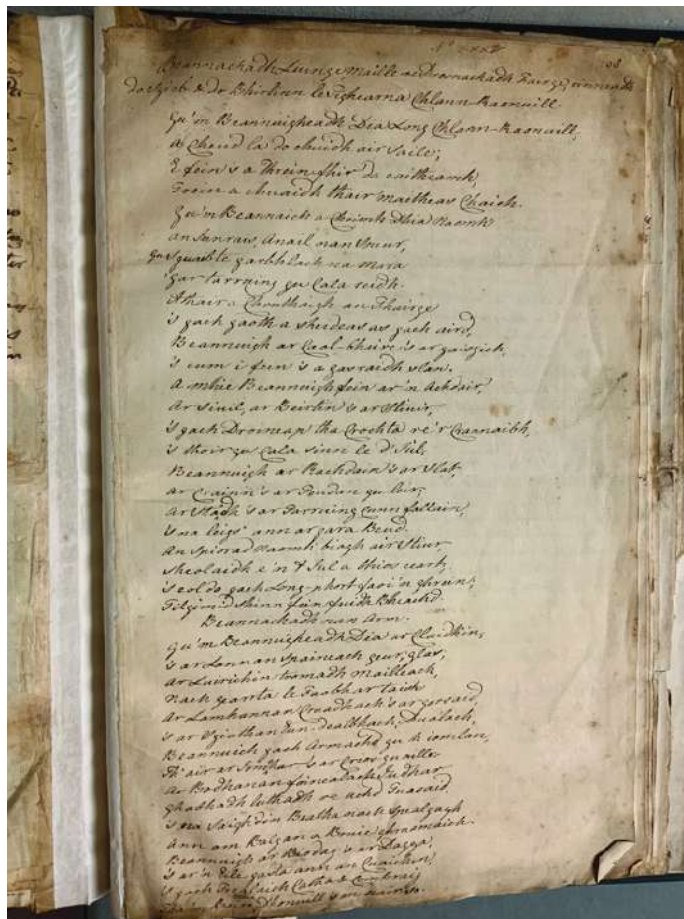 No XXV
108
Beannachadh Luinge, maille re Brosnachadh Fairge, rinneadh
do Bhirlinn le Tighearna Chlann-Raonuill.
Gu'm Beannuigheadh Dia Long Chlann-Raonuill,
A cheud la do chuidh air Saile;
E fein 's a Threin-fhir da caitheamh,
Trein a chuaidh thair maitheas Chaich.
Gu'm Beannaich a Dhia Naomh
an Anail nan Speur,
Gu Sguabte garbhlach na mara
gar tarrning gu Cala reidh.
Athair a an Fhairge
is gach gaoth a sheideas as gach aird,
Beannuigh ar Caol-bhairc 's ar gaisgich,
is cum i fein 's a gasraidh slan.
A mhic Beannuigh fein ar 'n Achdair,
Ar Siuil, ar Beirtin 's ar Stiuir,
is gach Droineap tha Crochta re 'r Crannaibh,
is thoir gu Cala sinn le d' Iul.
Beannuigh ar Rachdain 's ar Slat,
ar Crainn 's ar gu leir,
Ar Stadh 's ar Tarruing cum fallain,
is na leig ann ar gara Beud.
An Spiorad Naomh biagh air Stiur,
Sheolaidh e 'n t Iul a bhios ceart,
is eol do gach Long-phort faoi 'n ghrein,
Tilgim'd sinn fein fuidh Bheachd.
Beannachadh nan Arm.
Gu'm Beannuigheadh Dia ar Claidhin,
is ar Lannan Spaineach geur, glas,
Ar Luirichin troma mailleach,
Nach gearrta le Faobhar taish
Ar Lamhannan Cruadhach 's ar
is ar Sgiathan dealbhach, dualach,
Beannuich gach Armachd gu h iomlan,
Th' air ar 's ar Crios guaille
Ar Boghanan foinealach Iudhar
Ghabhadh luthadh re uchd Tuasaid
is na Saighdin Beatha nach Spealgagh
Ann am Balgan a Bhruic ghruamaich.
Beannuigh ar Biodag 's ar Dagga,
is ar 'n gasta ann an Cuaichin,
is gach Catha &